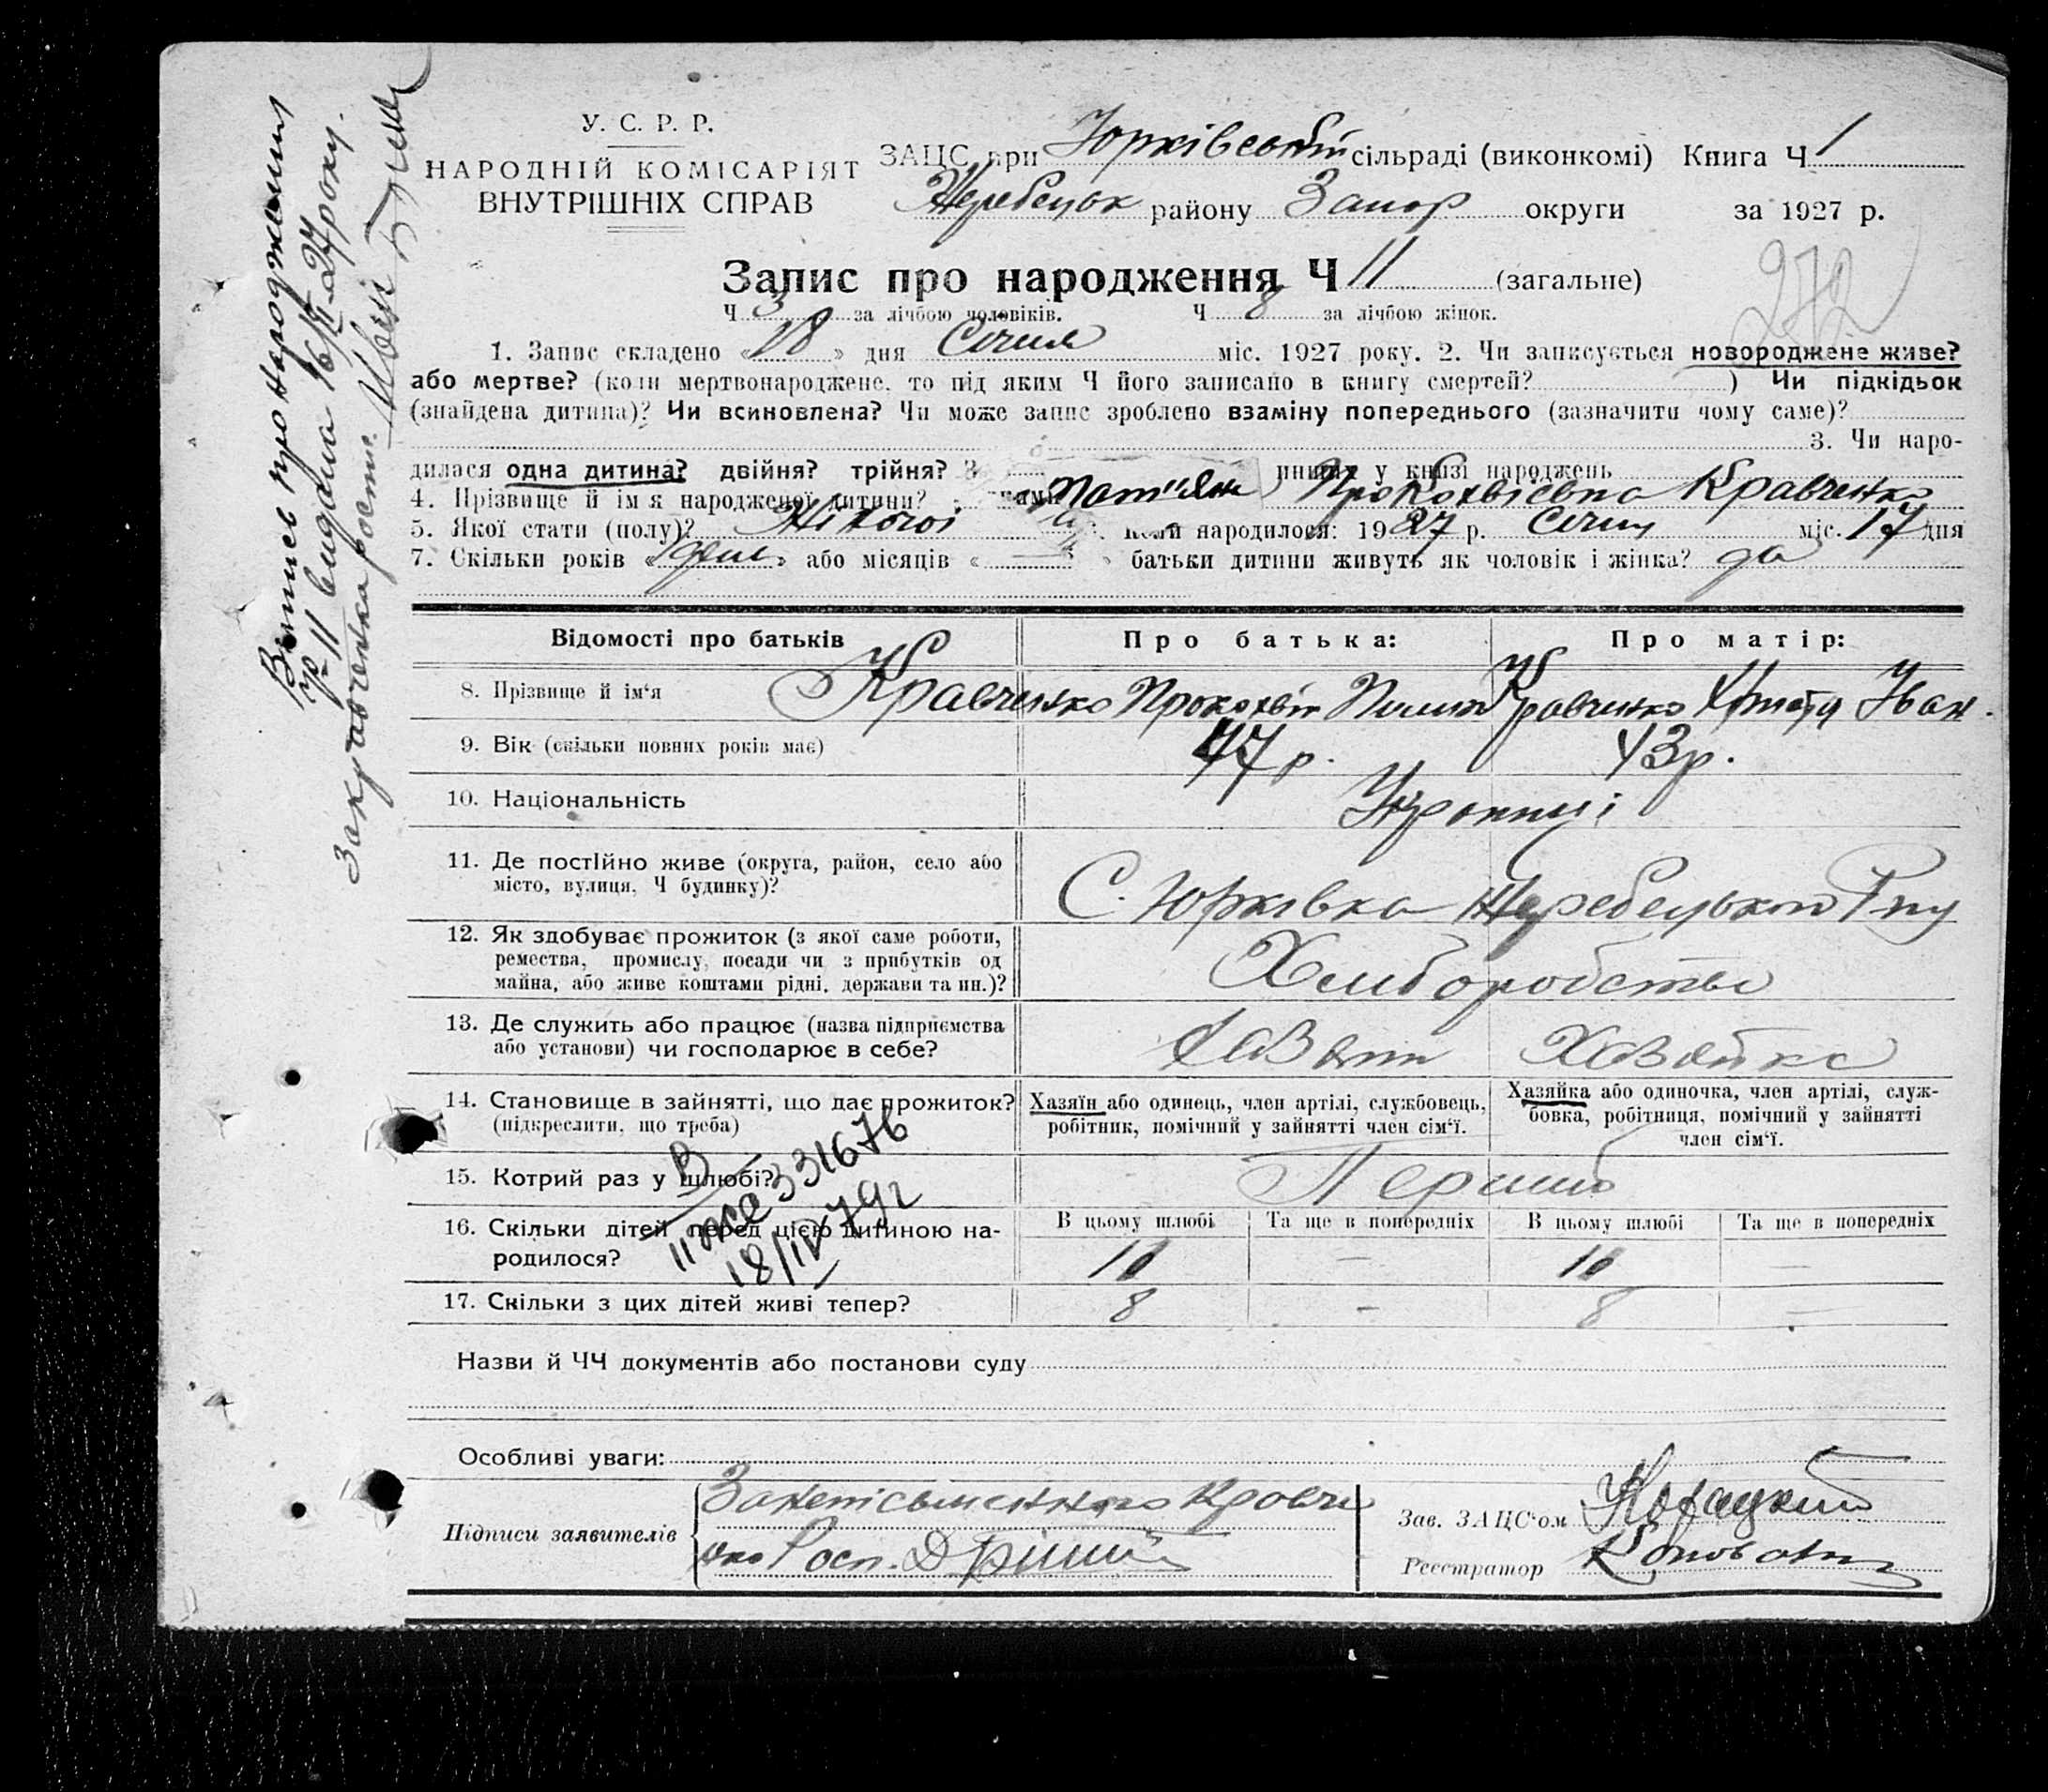 У. С. Р. Р.
НАРОДНІЙ КОМІСАРІЯТ
ВНУТРІШНІХ СПРАВ
ЗАЦС при Юрківській сільраді (виконкомі) Книга Ч 1
Жеребецьк району Запор округи за 1927 р.
Запис про народження Ч 11 (загальне)
272
Ч 3 за лічбою чоловіків. Ч 8 за лічбою жінок.
1. Запис складено «18» дня Січня міс. 1927 року. 2. Чи записується новороджене живе?
або мертве? (коли мертвонароджене, то під яким Ч його записано в книгу смертей? ) Чи підкідьок
(знайдена дитина)? Чи всиновлена? Чи може запис зроблено взаміну попереднього (зазначити чому саме)?
3. Чи наро-
дилася одна дитина? двійня? трійня? З у книзі народжень
4. Прізвище й ім'я народженої дитини? Прокохвієвна Кравченко
5. Якої стати (полу)? Жіночої коли народилося: 1927 р. Січня міс. 17 дня
7. Скільки років « » або місяців « » батьки дитини живуть як чоловік і жінка? да
Відомості про батьків Про батька: Про матір:
8. Прізвище й ім'я Кравченко Прокохвій Кравченко Іван.
9. Вік (скільки повних років має) 47 р. 43 р.
10. Національність Українці
11. Де постійно живе (округа, район, село або
місто, вулиця, Ч будинку)?
С. Юрківка Жеребецького Р-ну
12. Як здобуває прожиток (з якої саме роботи,
ремества, промислу, посади чи з прибутків од
майна, або живе коштами рідні, держави та ин.)?
Хлиборобство
13. Де служить або працює (назва підприємства
або установи) чи господарює в себе?
Хазяїн Хазяйка
14. Становище в зайнятті, що дає прожиток?
(підкреслити, що треба)
Хазяїн або одинець, член артілі, службовець,
робітник, помічний у зайнятті член сім'ї.
Хазяйка або одиночка, член артілі, служ-
бовка, робітниця, помічний у зайнятті
член сім'ї.
15. Котрий раз у шлюбі? Перший
16. Скільки дітей перед цією дитиною на-
родилося?
В цьому шлюбі Та ще в попередніх В цьому шлюбі Та ще в попередніх
10 — 10 —
17. Скільки з цих дітей живі тепер? 8 — 8 —
331676
18/IV 79г
Назви й ЧЧ документів або постанови суду
Особливі уваги:
Підписи заявителів
За неписьменного Кравче
нко Росп.
Зав. ЗАЦС'ом
Реєстратор
Випис про народження
№ 11 видана 16/II 27 року.
За Кравченка роспис.